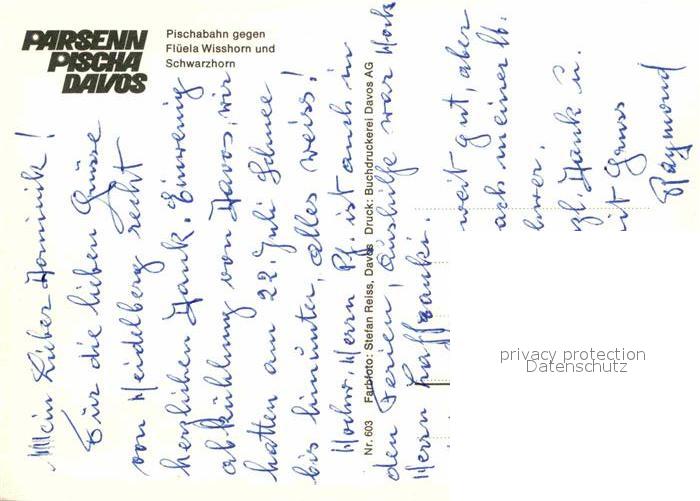 PARSENN
PISCHA
DAVOS
Pischabahn gegen
Flüela Wisshorn und
Schwarzhorn
Mein Lieber Dominik!
Für die lieben Grüsse
von Heidelberg recht
herzlichen Dank. Ein wenig
abkühlung von Davos, wir
hatten am 22. Juli Schnee
bis hinunter, alles weiss!
Hochw. Herrn Pf. ist auch in
den Ferien, Aushilfe war Hoch
Herrn
weit gut, aber
ach meiner lb.
zl. Dank u.
it Gruss
Raymond
Nr. 603 Farbfoto: Stefan Reiss, Davos Druck: Buchdruckerei Davos AG
privacy protection
Datenschutz